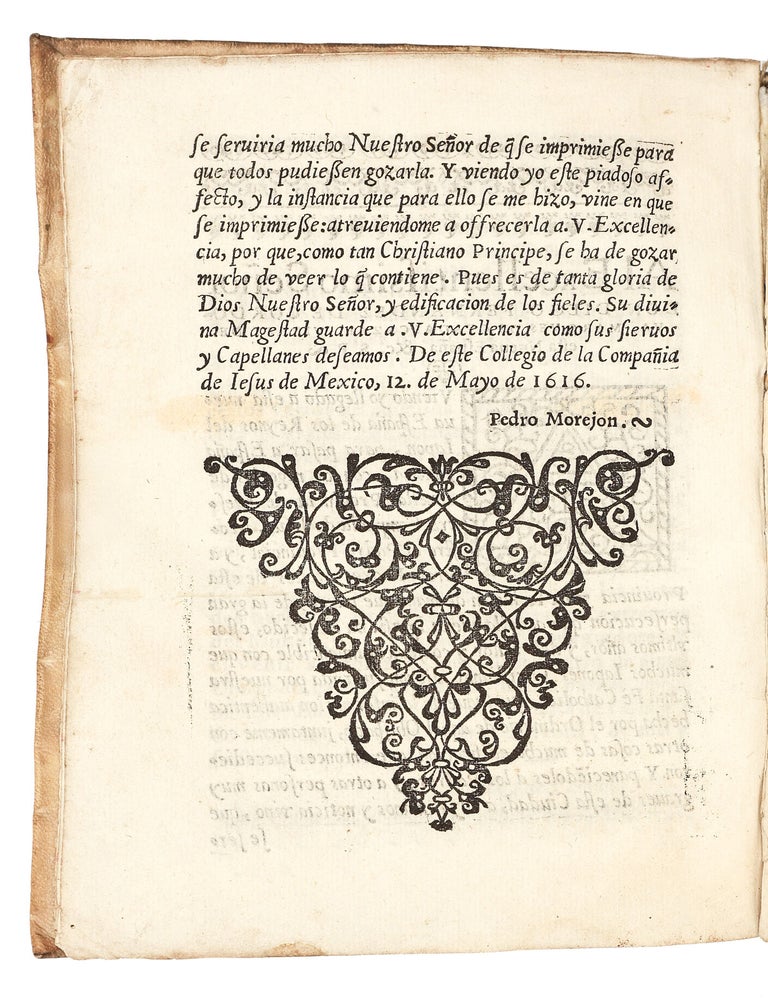 se seruiria mucho Nuestro Señor de q̃ se imprimieße para
que todos pudießen gozarla. Y viendo yo este piadoso af-
fecto, y la instancia que para ello se me hizo, vine en que
se imprimieße: atreuiendome a offrecerla a .V. Excellen-
cia, por que, como tan Christiano Principe, se ha de gozar
mucho de veer lo q̃ contiene. Pues es de tanta gloria de
Dios Nuestro Señor, y edificacion de los fieles. Su diui-
na Magestad guarde a .V. Excellencia como sus sieruos
y Capellanes deseamos. De este Collegio de la Compañia
de Iesus de Mexico, 12. de Mayo de 1616.
Pedro Morejon.